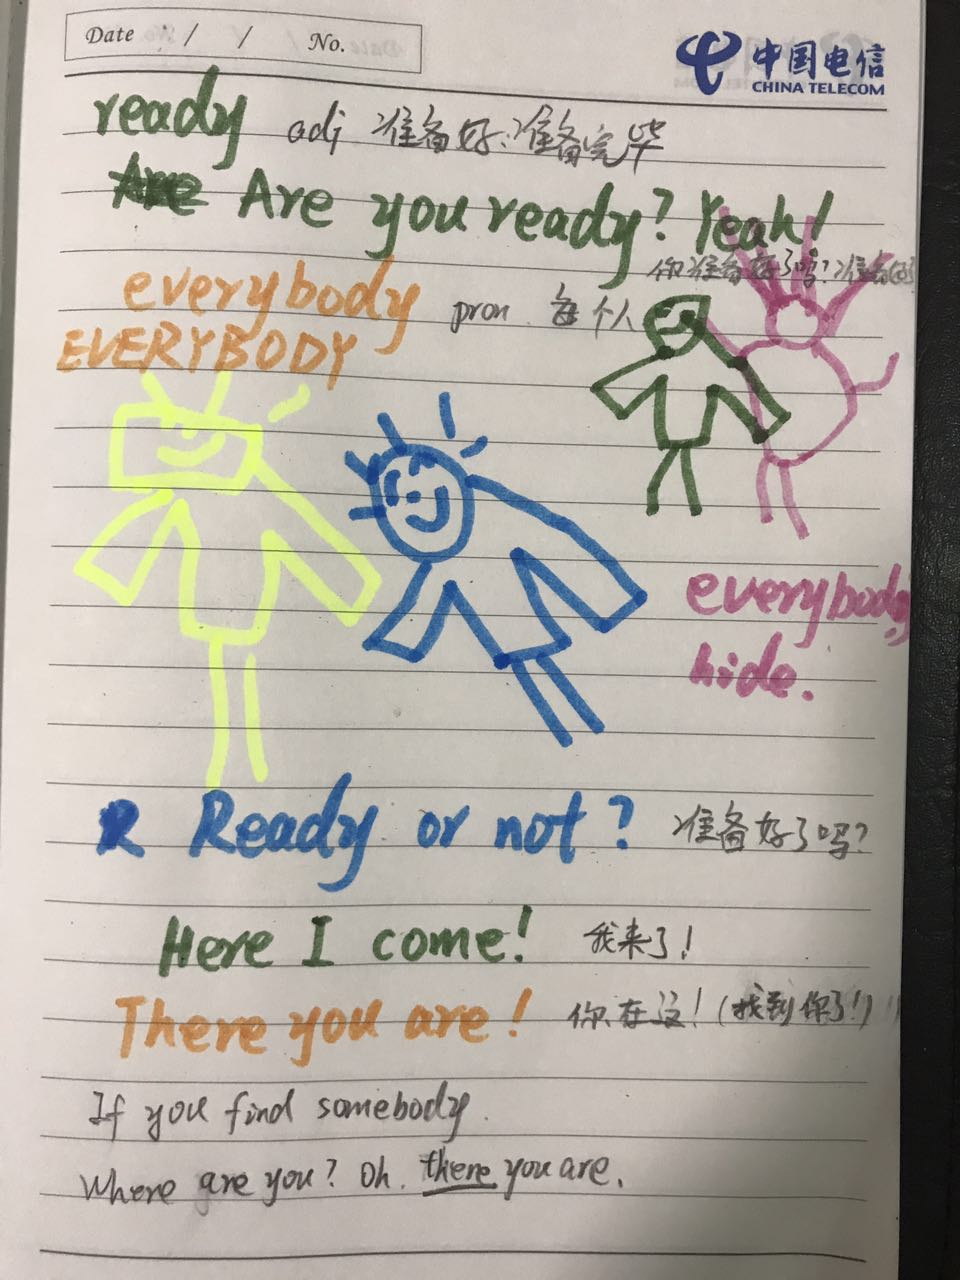 Date / / No.
中国电信
CHINA TELECOM
ready adj 准备好;准备完毕
Are Are you ready? Yeah!
你准备好了吗?准备好了
everybody pron 每个人
EVERYBODY
everybody,
hide.
R Ready or not? 准备好了吗?
Here I come! 我来了!
There you are! 你在这!(找到你了!)
If you find somebody.
Where are you? Oh. there you are.